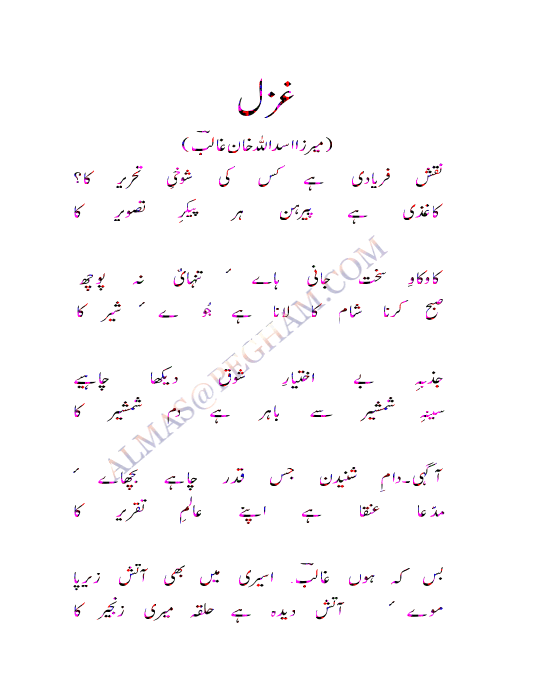 غزل
(میرزا اسد اللہ خان غالبؔ)
نقش فریادی ہے کس کی شوخیِ تحریر کا؟
کاغذی ہے پیرہن ہر پیکرِ تصویر کا
کاوکاوِ سخت جانی ہاے ٔ تنہائی نہ پوچھ
صبح کرنا شام کا لانا ہے جُو ے ٔ شیر کا
جذبہِ بے اختیارِ شوق دیکھا چاہیے
سینہِ شمشیر سے باہر ہے دم شمشیر کا
آگہی۔دامِ شنیدن جس قدر چاہے بچھاے ٔ
مدّعا عنقا ہے اپنے عالمِ تقریر کا
بس کہ ہوں غالبؔ۔ اسیری میں بھی آتش زیرپا
موے ٔ آتش دیدہ ہے حلقہ میری زنجیر کا
ALMAS@PEGHAM.COM